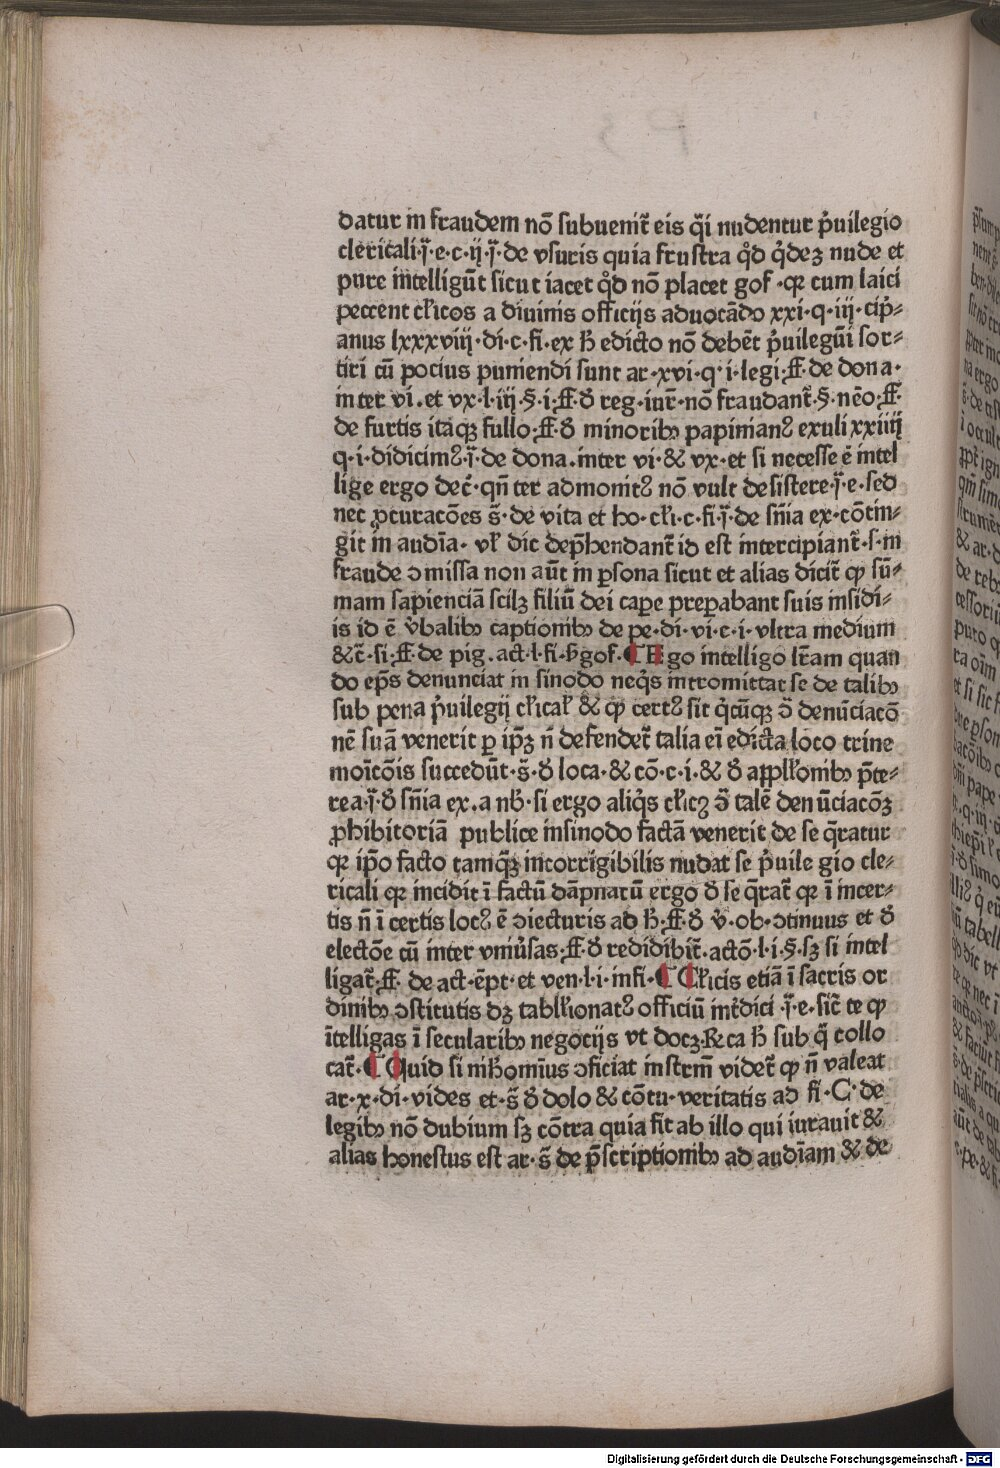 datur in fraudem nō subuenit̃ eis q̃i nudentur p̓uilegio
clericali·j̃·e·c·ij·j̃·de vsuris quia frustra q̊d q̓dez nude et
pure intelligūt sicut iacet q̊d nō placet gof·qꝛ cum laici
peccent cłicos a diuinis officijs aduocādo xxi·q·iij·cip̓⸗
anus lxxxviij·di·c·fi·ex ħ edicto nō debēt p̓uilegiū sor⸗
tiri cū pocius puniendi sunt ar·xvi·q·i·legi·ff·de dona·
inter vi·et vx·l·iij·§·i·ff·d̓ reg·iur̃·nō fraudant̃·§·nēo·ff·
de furtis itaqꝫ fullo·ff·d̓ minoribꝫ papinianꝰ exuli xxiiij
q·i·didicimꝰ·j̃·de dona·inter vi·& vx·et si necesse ē intel
lige ergo dec̃·qn̄ ter admonitꝰ nō vult desistere·j̃·e·sed
nec ꝓcuracōes s̃·de vita et ho·cłi·c·fi·j̃·de sn̄ia ex·cōtin⸗
git in audīa·vł dic dep̄hendant̃ id est intercipiant̃·s·in
fraude ↄmissa non aūt in ꝑsona sicut et alias dicit̃ ꝙ sū⸗
mam sapienciā scilꝫ filiū dei caꝑe preꝑabant suis insidi⸗
is id ē v̓balibꝫ captionibꝫ de pe·di·vi·c·i·vltra medium
&c̃·si·ff·de pig·act·l·fi·ħ gof·¶ Ego intelligo lr̄am quan
do ep̄s denunciat in sinodo neq̓s intromittat se de talibꝫ
sub pena p̓uilegij cłical̓ & ꝙ certꝰ sit q̓cūqꝫ ↄ̄ denūciacō
nē suā venerit ꝑ ip̄ꝫ n̄ defendet̃ talia ei edicta loco trine
moīcōis succedūt·s̃·d̓ loca·& cō·c·i·& d̓ appłłonibꝫ p̄te⸗
rea·j̃·d̓ sn̄ia ex·a nb̓·si ergo aliq̓s cłicꝫ ↄ̄ talē denūciacōꝫ
ꝓhibitoriā publice insinodo factā venerit de se q̄ratur
qꝛ ip̄o facto tamq̄ꝫ incorrigibilis nudat se p̓uile gio cle⸗
ricali qꝛ incidit ī factū dāpnatū ergo d̓ se q̄rat̃ qꝛ ī incer⸗
tis n̄ ī certis locꝰ ē ↄiecturis ad ħ·ff·d̓ v̓·ob·ↄtinuus et d̓
electōe cū inter vniu̓sas·ff·d̓ redidibit̃·actō·l·i·§·sꝫ si intel
ligat̃·ff·de act·ēpt·et ven·l·i·infi·¶ Cłicis etiā ī sacris or
dinibꝫ ↄstitutis dꝫ tabłłionatꝰ officiū int̃dici·j̃·e·sic̃ te ꝙ
ītelligas ī secularibꝫ negocijs vt docꝫ·℞ca ħ sub q̃ collo
cat̃·¶ Quid si nihomīus ↄficiat instrm̄ videt̃ ꝙ n̄ valeat
ar·x·di·vides et·s̃ d̓ dolo & cōtu·veritatis ad fi·C·de
legibꝫ nō dubium sꝫ cōtra quia fit ab illo qui iurauit &
alias honestus est ar·s̃ de p̄scriptionibꝫ ad audīam & de
Digitalisierung gefördert durch die Deutsche Forschungsgemeinschaft - DFG